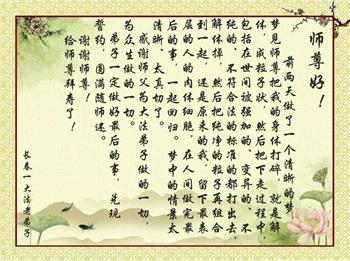 师尊好！
前两天做了一个清晰的梦，
梦见师尊把我的身体打碎，就是解
体，成粒子状，然后把下走过程中
包括在世间被强加的、变异的、不
纯的、不符合法的标准的都打出去，
解体掉，然后把纯净的粒子再组合
到一起，还是原来的我，留下最表
层的人的肉体细胞，在人间做完最
后的事，一起回归。梦中的情景太
清晰、太真切了。
感谢师父为大法弟子做的一切，
为众生做的一切。
弟子一定做好最后的事，兑现
誓约，圆满随师还。
谢谢师尊！
给师尊拜寿了！
长春一大法老弟子